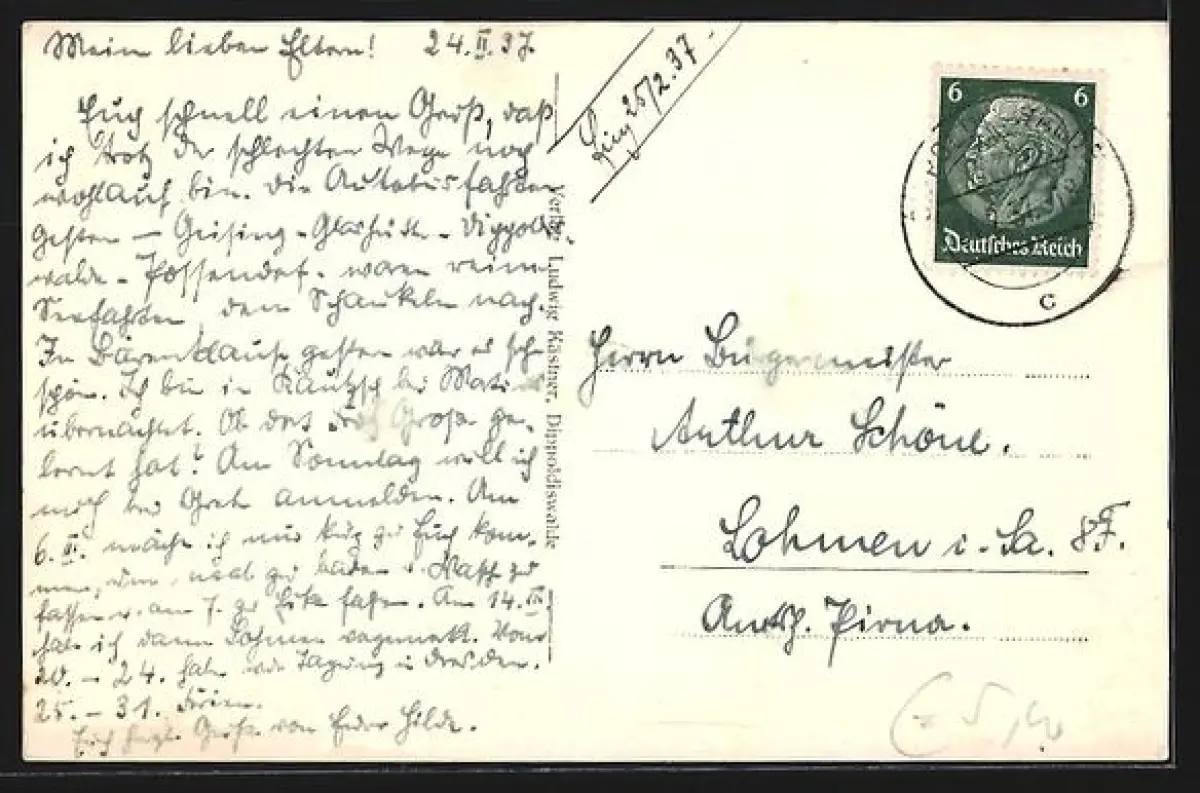 Mein lieben Eltern! 24.II.37.
Euch schnell einen Gruß, daß
ich trotz der schlechten Wege noch
wohlauf bin. Die Autobusfahrten
gestern - Geising - Glashütte - Dippoldis-
walde - Possendorf. waren reine
Seefahrten, dem Schaukeln nach.
In Bärenklause gestern war es sehr
schön. Ich bin in Kautzsch bei
übernachtet. Ob das Große ge-
lernt hat? Am Sonntag will ich
mich bei Gret anmelden. Am
6. III. möchte ich nur kurz zu Euch kom-
men, um mal zu baden u. Wäsch zu
fassen u. am 7. zu fahren. Am 14. III.
hab ich dann Lohmen vorgemerkt. Vom
20. - 24. habe Tagung in Dresden.
25. - 31. Ferien.
Euch herzl. Grüße von Eurer Hilde.
Verlag Ludwig Kästner, Dippoldiswalde
25/2.37.
6 6
Deutsches Reich
c
Herrn Bürgermeister
Arthur Schöne.
Lohmen i. Sa. 8F.
Amtsh. Pirna.